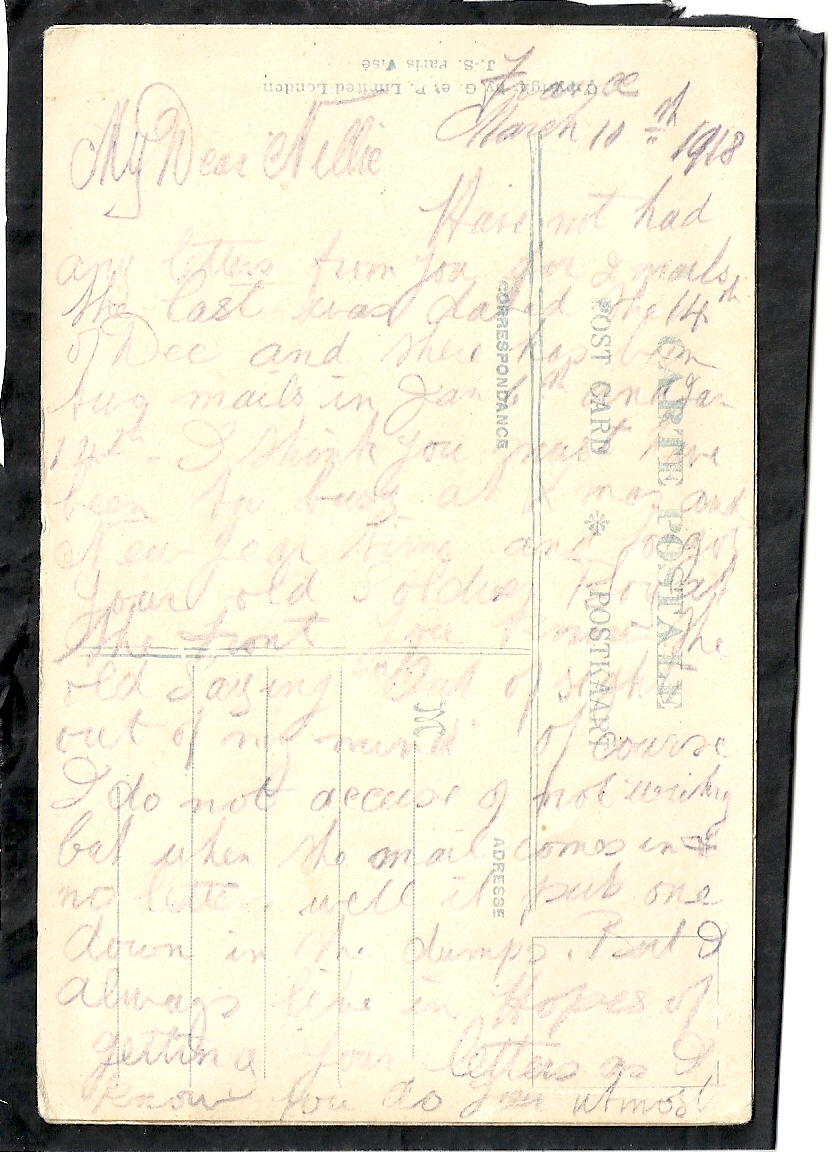 France
March 10th 1918
My Dear Nellie
Have not had
any letters from you for 2 mails
the last was dated the 14th
of Dec and there has been
mails in Jan 6th and Jan
14th - I think you must have
been too busy at X mas and
New Year time and forgot
your old Soldier Boy at
the Front you know the
old Saying "Out of sight
out of my mind" of course
I do not accuse of not writing
but when the mail comes in &
no letters well it puts one
down in the dumps. But I
always live in Hopes of
getting your letters as I
know you do your utmost
CARTE POSTALE
POST CARD * POSTKAART
CORRESPONDANCE
ADRESSE
M
Copyright by G. et P. Limited London
J.-S. Paris Visé